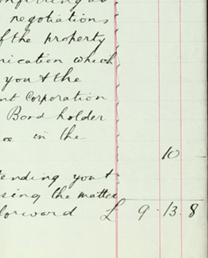 negotiations
of the property
nication which
you & the
nt Corporation
Bond holder
in the
10
ending you
sing the matter
forward £ 9 - 13 - 8